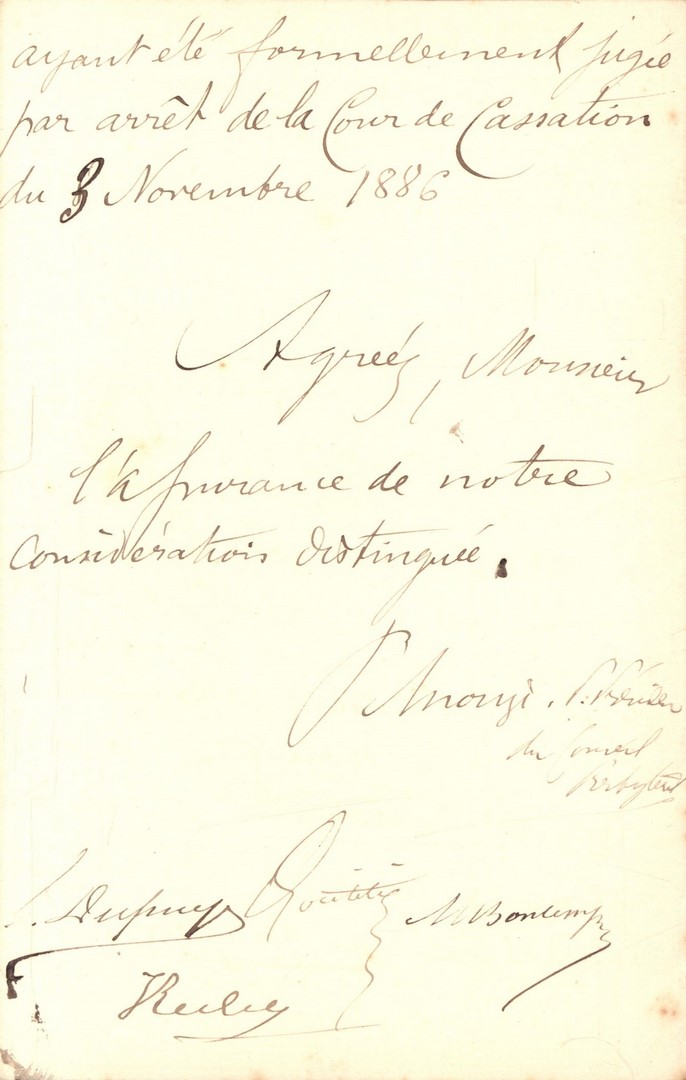 ayant été formellement jugée
par arrêt de la Cour de Cassation
du 3 Novembre 1886
Agréez, Monsieur
l'assurance de notre
considération distinguée.
du Conseil
Presbytéral
Dupuy
M Bontemps